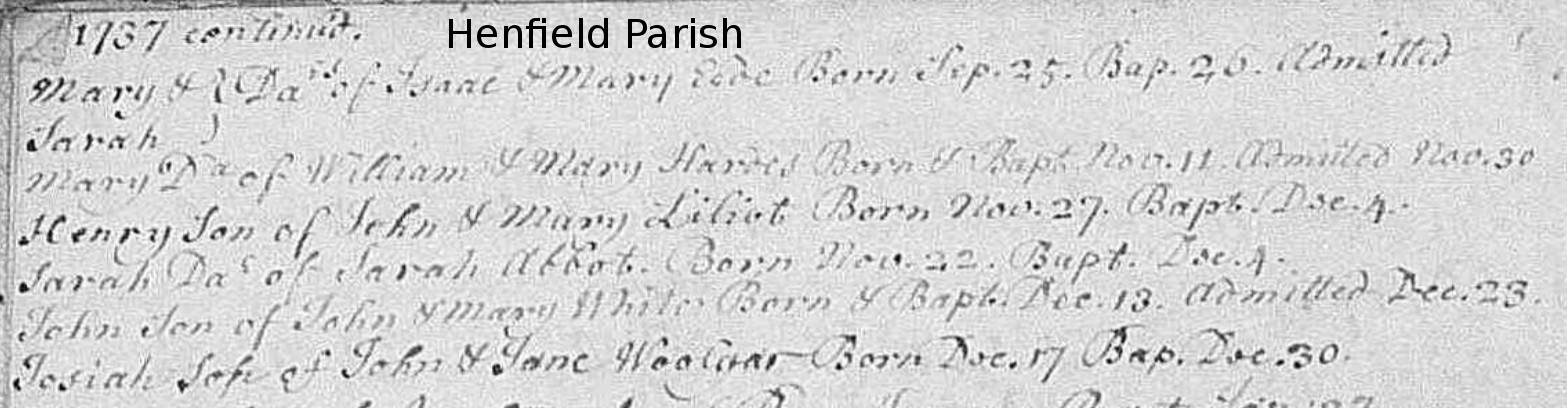 1737 continu'd.
Henfield Parish
Mary & } Da.rs of Isaac & Mary Born Sep. 25. Bap. 26. Admitted
Sarah }
Mary Da of William & Mary Born & Bapt. Nov. 11. Admitted Nov. 30
Henry Son of John & Mary Born Nov. 27. Bapt. Dec. 4.
Sarah Dar of Sarah Abbot. Born Nov. 22. Bapt. Dec. 4.
John Son of John & Mary White Born & Bapt. Dec. 13. Admitted Dec. 23.
Josiah Son of John & Jane Woolgar Born Dec. 17 Bap. Dec. 30.